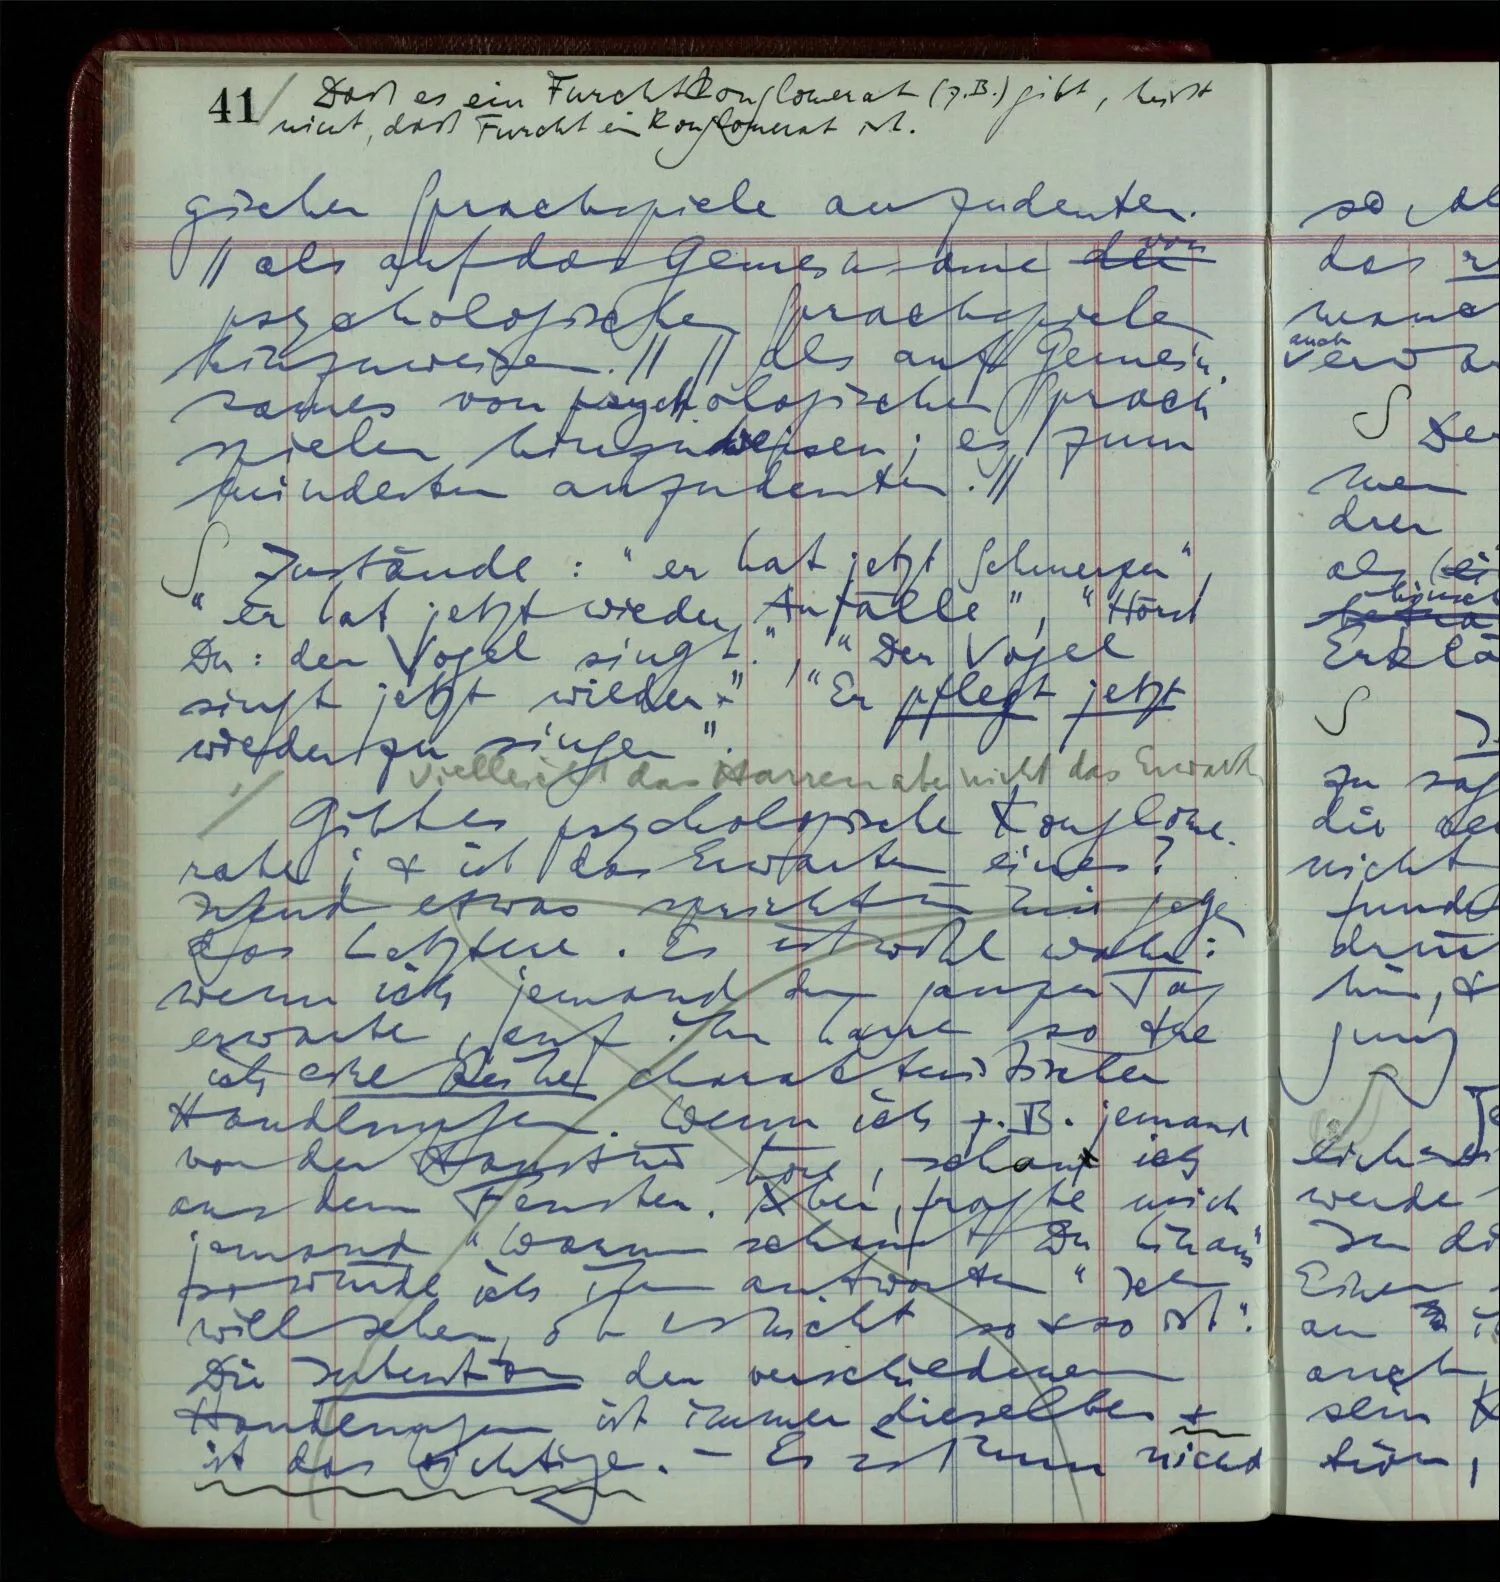 41 / Daß es ein Furchtkonglomerat (z.B.) gibt, heißt
nicht, daß Furcht ein Konglomerat ist.
gischer Sprachspiele anzudeuten.
// als auf das Gemeinsame der von
psychologischen Sprachspielen
hinzuweisen. // // als auf Gemein-
sames von psychologischen Sprach
spielen hinzuweisen; es zum
mindesten anzudeuten. //
∫ Zustände: "er hat jetzt Schmerzen",
"er hat jetzt wieder Anfälle", "Hörst
Du: der Vogel singt.", "Der Vogel
singt jetzt wieder." "Er pflegt jetzt
wieder zu singen".
Vielleicht das Harren aber nicht das Erwarten
/ Gibt es psychologische Konglome-
rate; & ist das Erwarten eines?
Irgend etwas spricht in mir gegen
das Letztere. Es ist wohl wahr:
wenn ich jemand den ganzen Tag
erwarte, auf ihn harre so tue
ich eine Reihe charakteristischer
Handlungen. Wenn ich z.B. jemand
von der Haustür höre, schaue ich
aus dem Fenster. Aber, fragte mich
jemand "Warum schaust Du hinaus"
so würde ich ihm antworten "Ich
will sehen, ob es nicht so & so ist".
Die Intention der verschiedenen
Handlungen ist immer dieselbe &
ist das Wichtige. – Es ist nun nicht
so
das
auch
∫ De
men
drei
als
Erklä
∫
zu sag
die
nicht
hin, &
werde
In di
Einen
an
auch
sein K
tion,